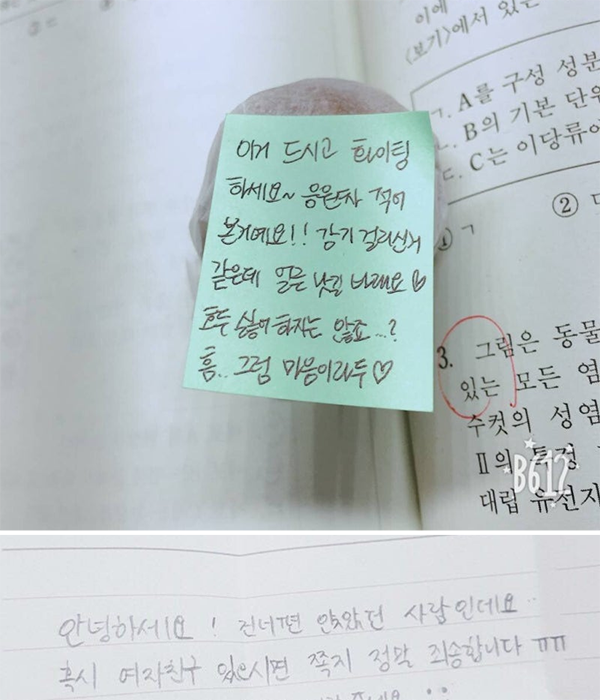 이에
<보기>에서 있는
ㄱ. A를 구성 성분
ㄴ. B의 기본 단위
ㄷ. C는 이당류이
① ㄱ
②
이거 드시고 화이팅
하세요~ 응원차 적어
본거예요!! 감기 걸리신거
같은데 얼른 낫길 바래요♡
호두 싫어하지는 않죠...?
흠.. 그럼 마음이라두♡
3. 그림은 동물
있는 모든 염
수컷의 성염
Ⅱ의 특정
대립 유전자
B612
안녕하세요! 건너편 앉았던 사람인데요..
혹시 여자친구 있으시면 쪽지 정말 죄송합니다 ㅠㅠ